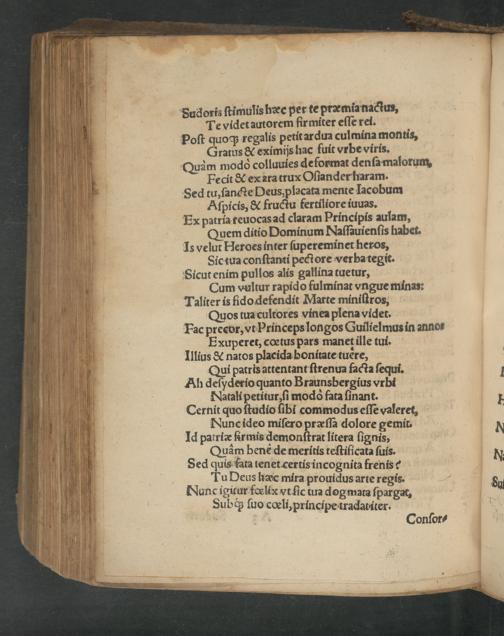 Sudoris stimulis hæc per te præmia nactus,
Te videt autorem firmiter esse rei.
Post quoqȝ regalis petit ardua culmina montis,
Gratus & eximijs hac fuit vrbe viris.
Quàm modò colluuies deformat densa malorum,
Fecit & ex ara trux Osiander haram.
Sed tu, sancte Deus, placata mente Iacobum
Aspicis, & fructu fertiliore iuuas.
Ex patria reuocas ad claram Principis aulam,
Quem ditio Dominum Nassauiensis habet.
Is velut Heroes inter supereminet heros,
Sic tua constanti pectore verba tegit.
Sicut enim pullos alis gallina tuetur,
Cum vultur rapido fulminat vngue minas:
Taliter is fido defendit Marte ministros,
Quos tua cultores vinea plena videt.
Fac precor, vt Princeps longos Guilielmus in annos
Exuperet, cœtus pars manet ille tui.
Illius & natos placida bonitate tuêre,
Qui patris attentant strenua facta sequi.
Ah desyderio quanto Braunsbergius vrbi
Natali petitur, si modò fata sinant.
Cernit quo studio sibi commodus esse valeret,
Nunc ideo misero præssa dolore gemit.
Id patriæ firmis demonstrat litera signis,
Quàm benè de meritis testificata suis.
Sed quis fata tenet certis incognita frenis?
Tu Deus hæc mira prouidus arte regis.
Nunc igitur fœlix vt sic tua dogmata spargat,
Subqȝ suo cœli, principe tradat iter.
Consor⸗